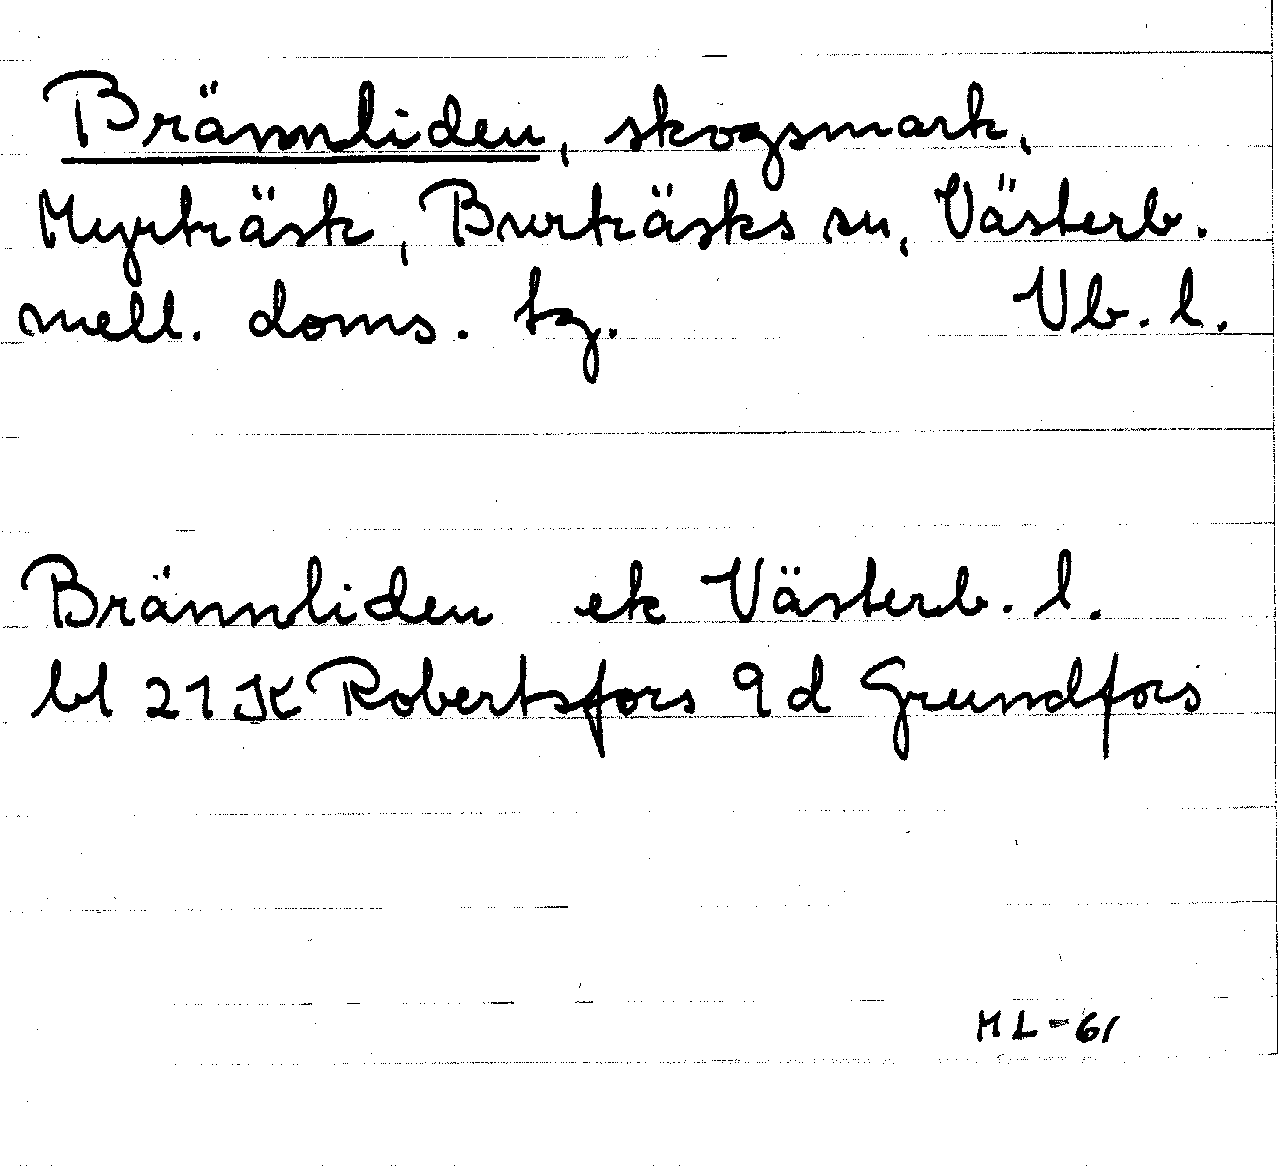 Brännliden, skogsmark,
Myrträsk, Burträsks sn, Västerb.
mell. doms. tg. Vb. l.
Brännliden ek Västerb. l.
bl 21 K Robertsfors 9 d Grundfors
ML-61